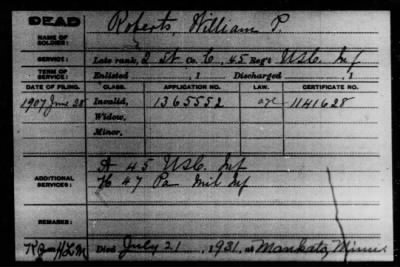 DEAD
NAME OF SOLDIER: Roberts, William P.
SERVICE: Late rank, 2 Lt Co. C, 45 Reg't U.S.C. Inf
TERM OF SERVICE: Enlisted , 1 Discharged , 1
DATE OF FILING. CLASS. APPLICATION NO. LAW. CERTIFICATE NO.
1907 June 28 Invalid, 1365552 age 1141628
Widow,
Minor,
A 45 U.S.C. Inf
ADDITIONAL SERVICES: H 47 Pa Mil Inf
REMARKS:
Died July 21, 1931, at Mankato, Minn